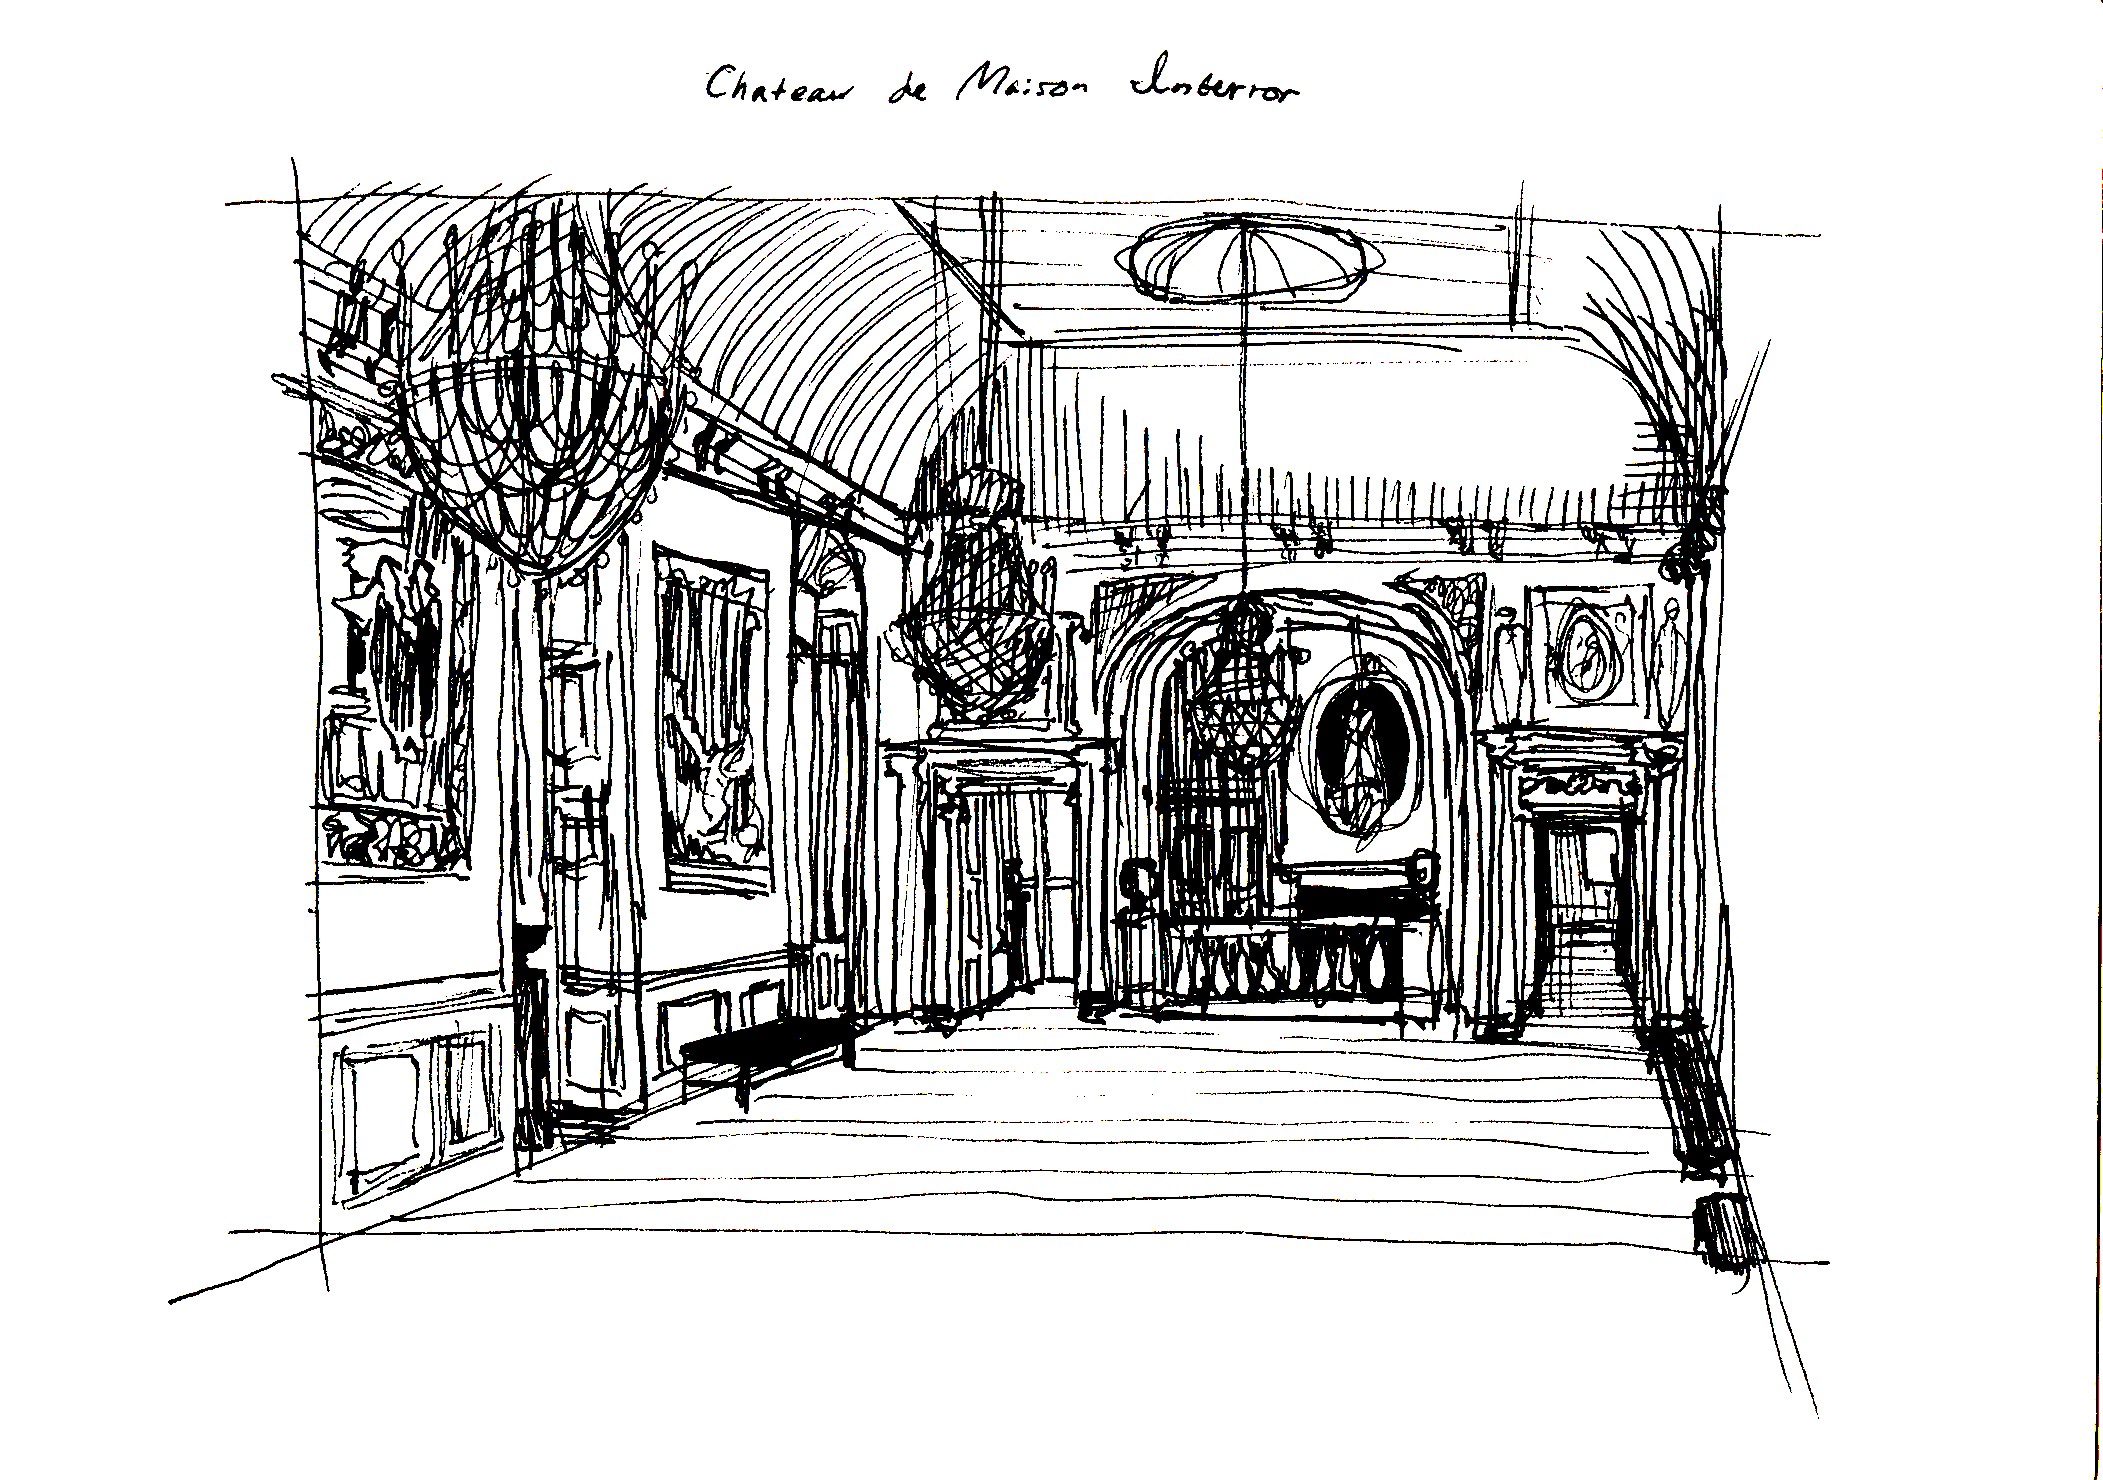 Chateau de Maison Interror